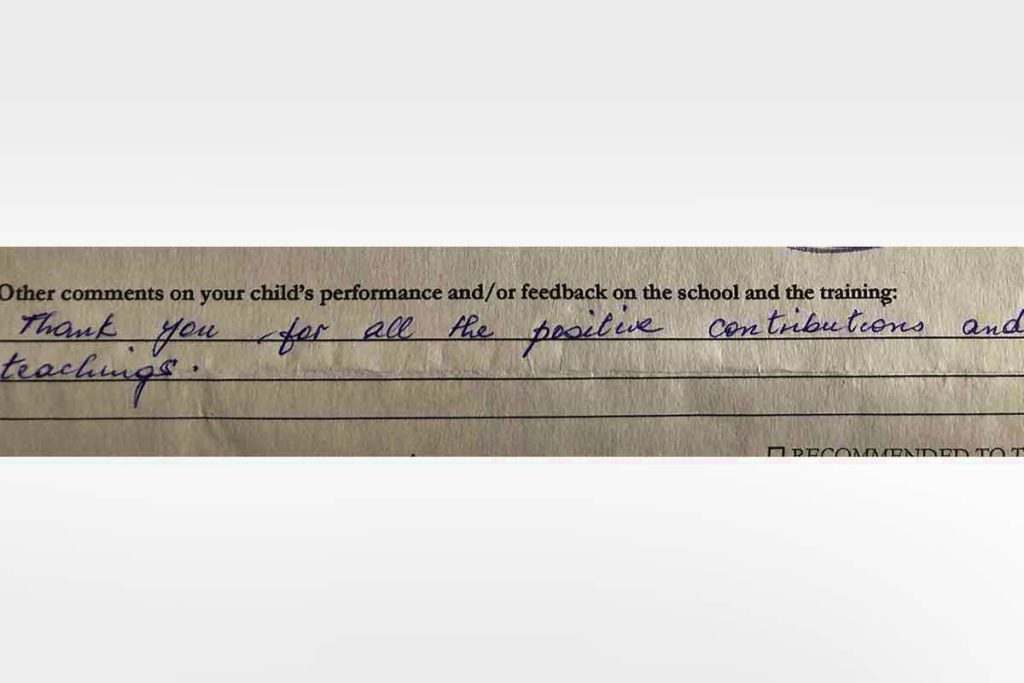 Other comments on your child's performance and/or feedback on the school and the training:
Thank you for all the positive contributions and
teachings.
RECOMMENDED TO T